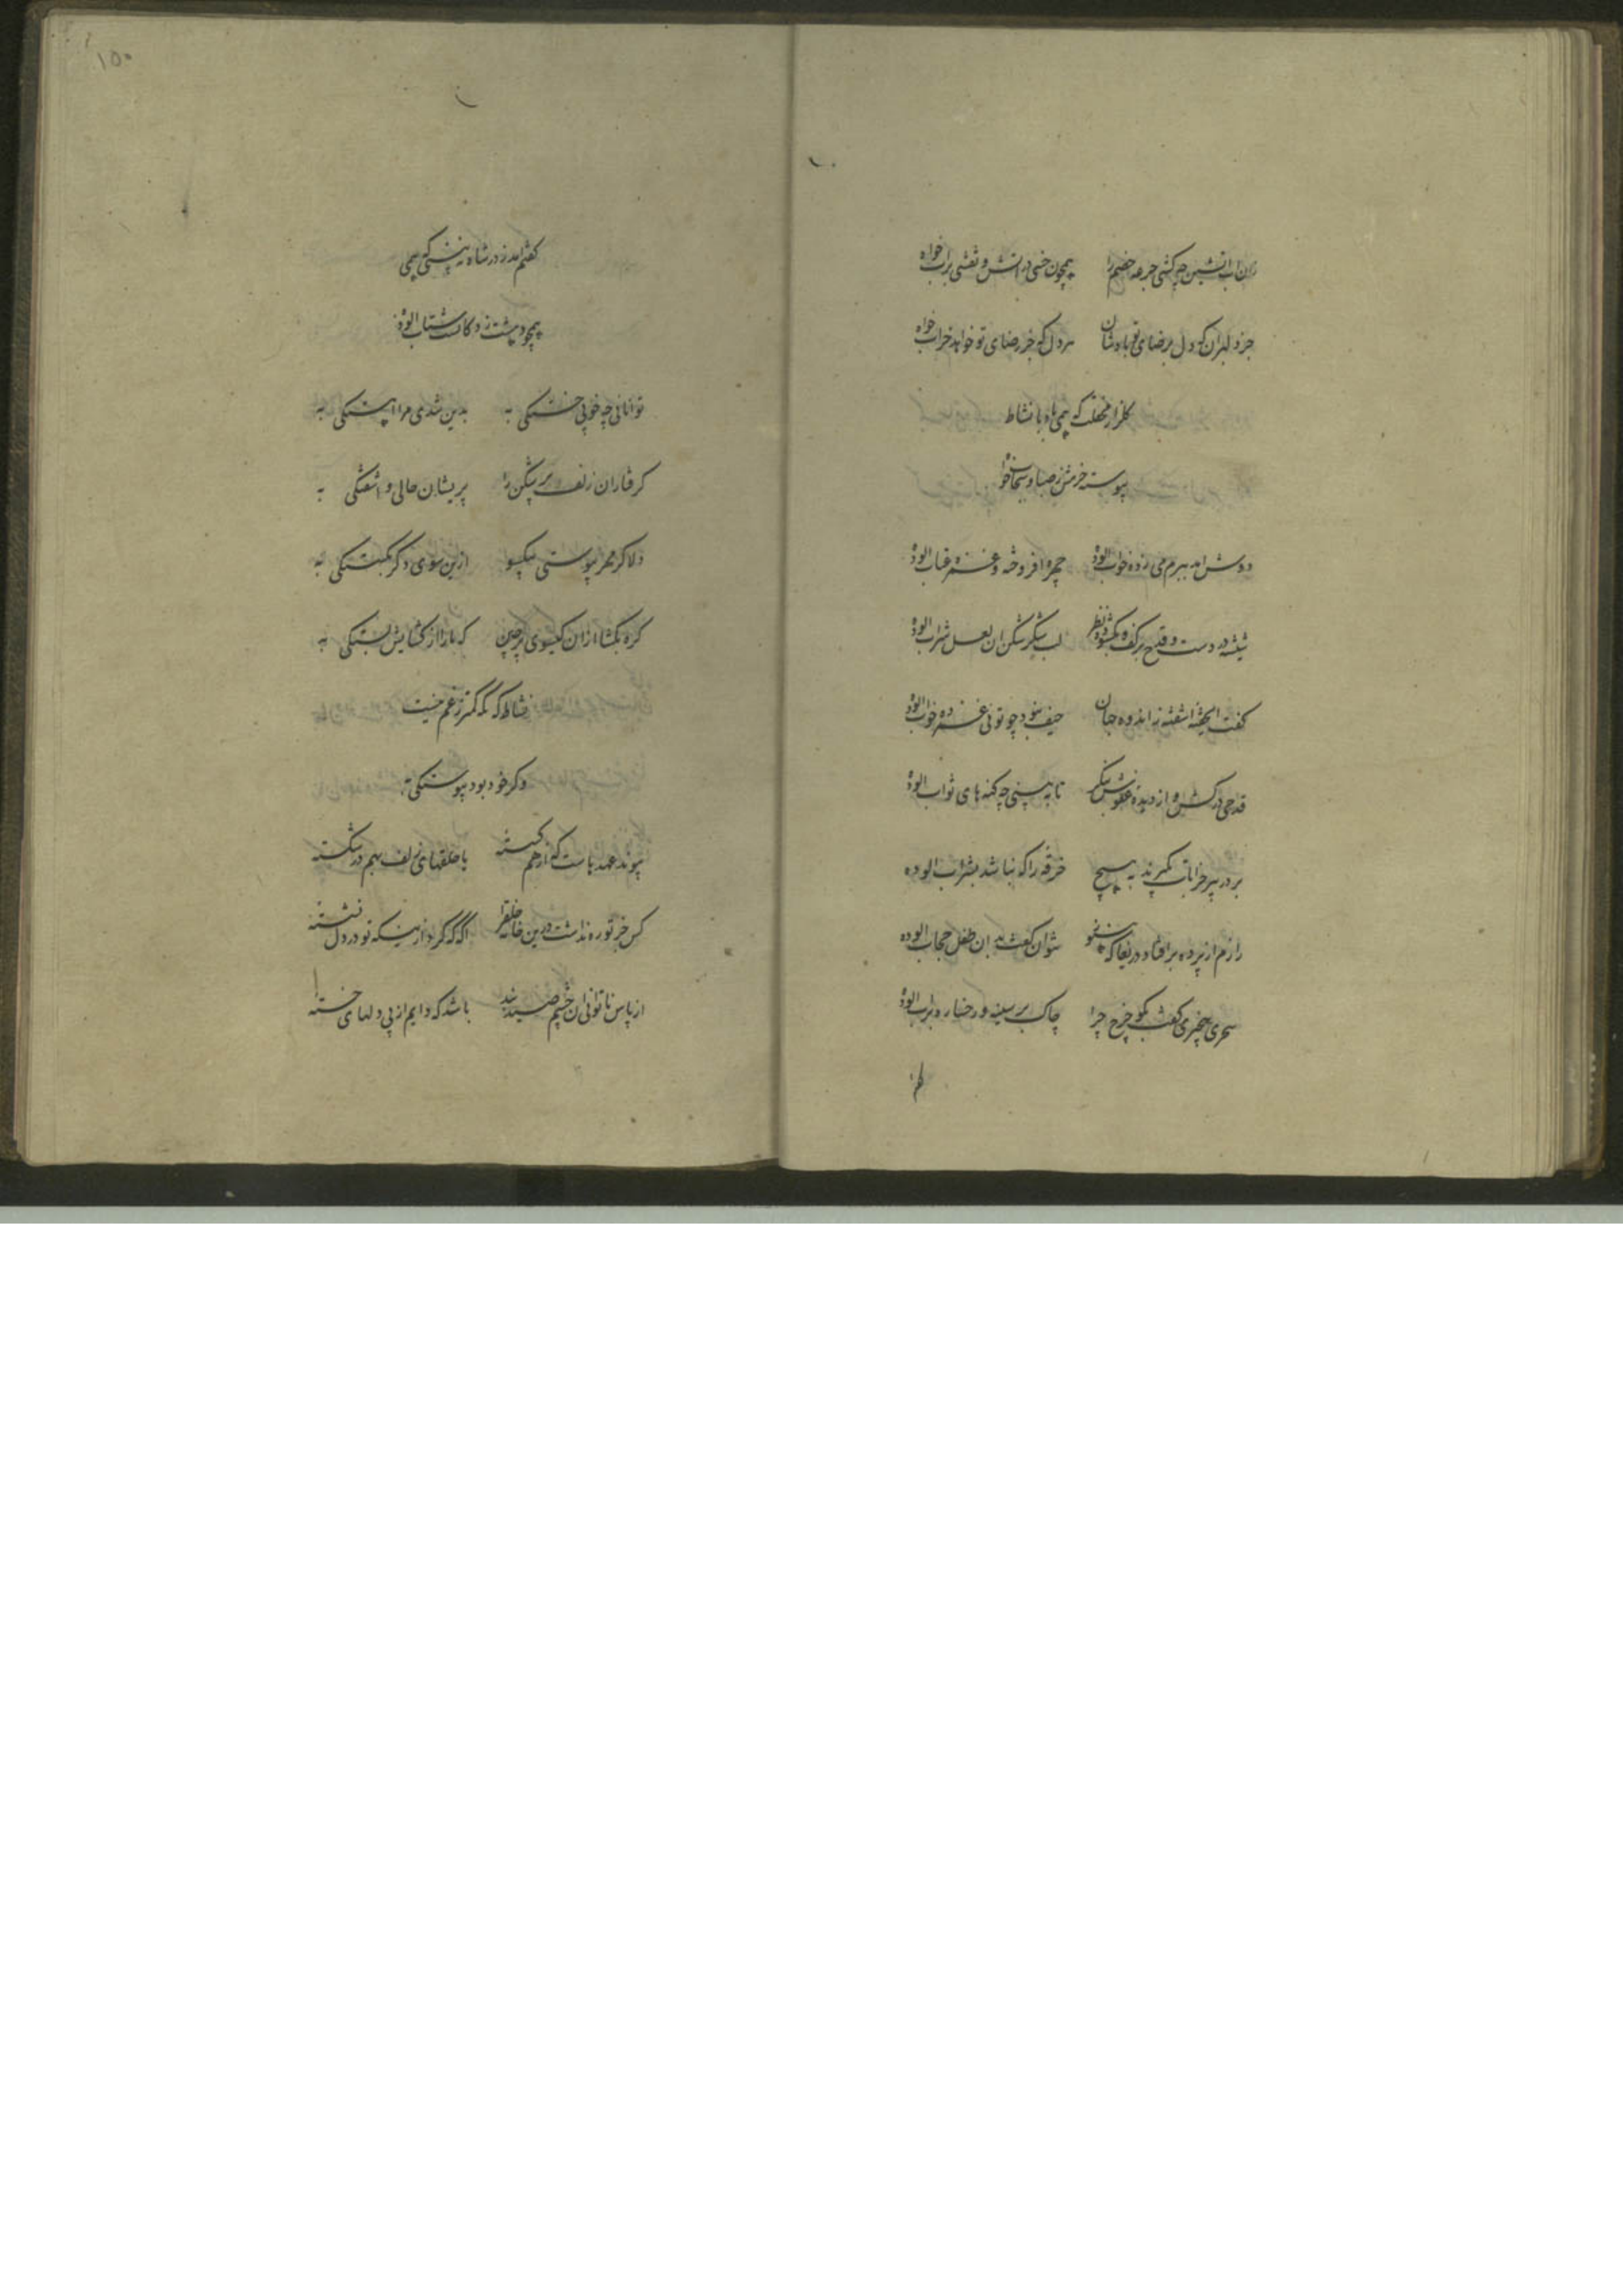 زان اب اتشین چه کشی جرعه خصم را همچون خسی در اتش و نقشی براب خواه
جزدلبران که دل برضای تو بادشان هردل که جز رضای تو خواهد خراب خواه
کلزار محفلت که همی باد با نشاط
پیوسته خرمش ز صبا و سحاب خواه
دوش امد ببرم می زده خواب الوده چهره افروخته و غمزه عتاب الوده
شیشه در دست و قدح برکف و بکشود نظر لب شکر شکن ان لعل شراب الوده
کفت اشفته ز اندوه جهان حیف نبود چو توئی غمزده خواب الوده
قدحی درکش و از دیده عفوش بنکر تا ببینی چه کنه های ثواب الوده
بر در پیر خرابات نکیرند بهیچ خرقه را که نباشد بشراب الوده
رازم از پرده برافتاد دریغا که هنوز نتوان کفت بدان طفل حجاب الوده
سحری بیخبری کفت بکو چرخ چرا چاک بر سینه و رخساره براب الوده
کفتم امد ز در شاه به
همچو دست الوده
توانائی چه خوئی خستکی به بدین تندی مرا اهستکی به
کرفتاران زلف پرشکن را پریشان حالی و اشفتکی به
دلا کر مهر پیوستی بیکسو ازین سوی دکر بکسستکی به
کره بکشا ازان کیسوی پرچین که ما را از کشایش بستکی به
نشاط که که کمتر ز غم نیست
وکر خود بود پیوستکی به
پیوند عهدهاست که از هم کسسته با حلقهای زلف بهم درشکسته
کس جز تو ره نداشت درین خانه اکه که کرد ازینکه تو در دل نشسته
از پاس ناتوانان چشم باشد که دایم از پی دلهای خسته